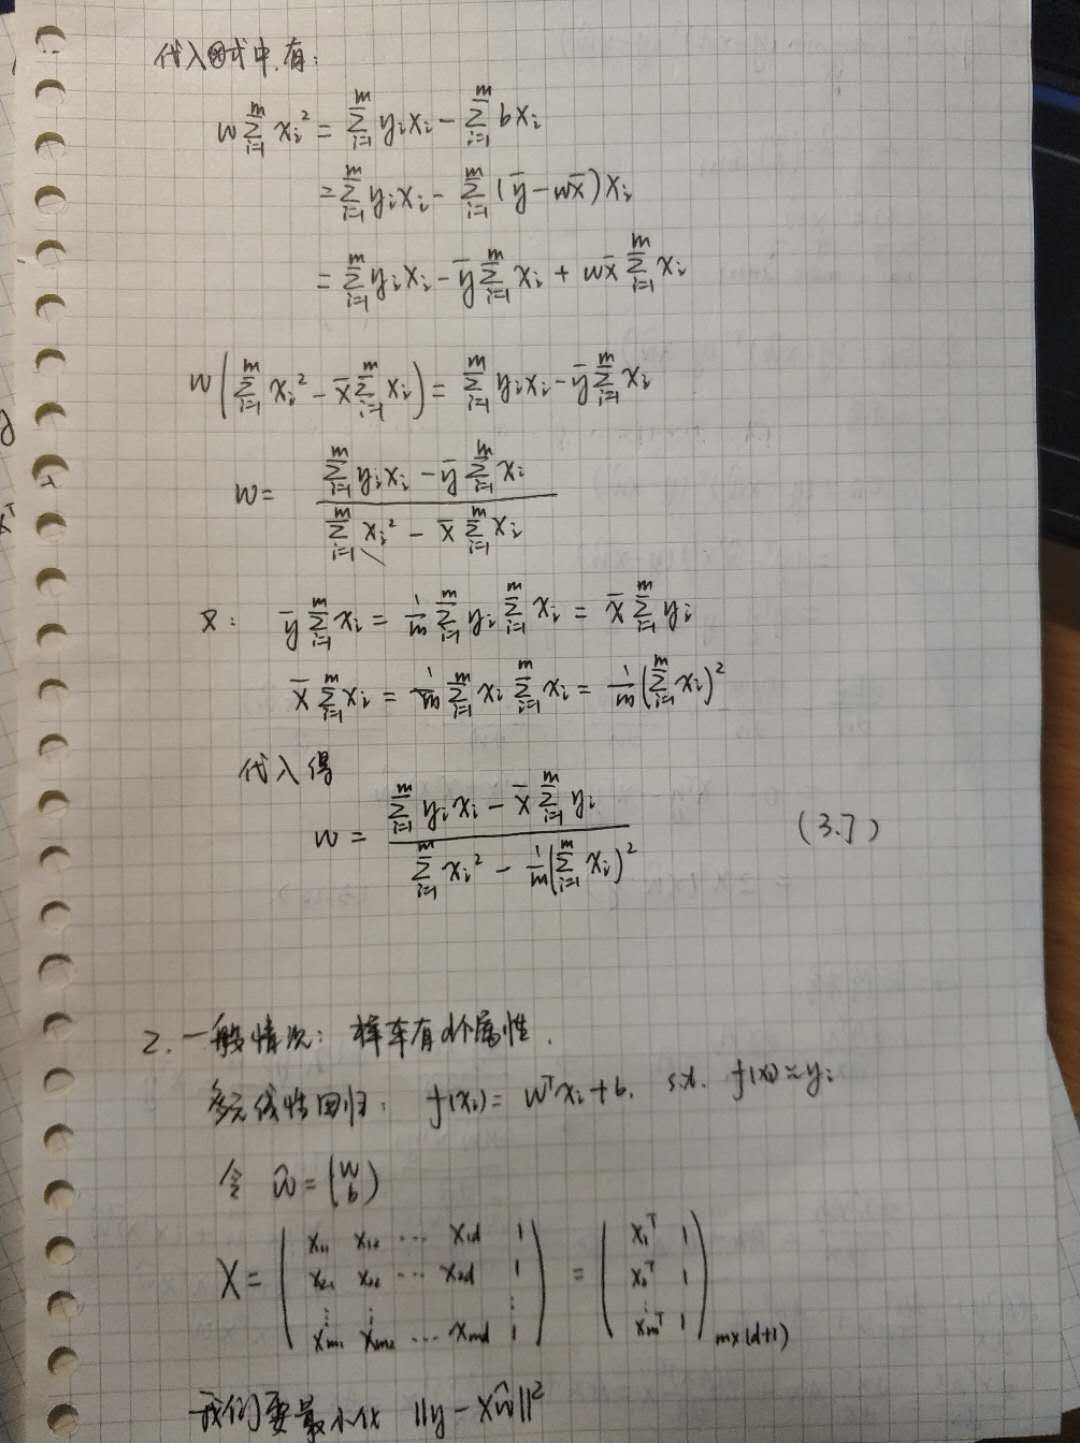 代入④式中有:
w∑_{i=1}^{m} x_i² = ∑_{i=1}^{m} y_i x_i - ∑_{i=1}^{m} b x_i
= ∑_{i=1}^{m} y_i x_i - ∑_{i=1}^{m} (ȳ - w x̄) x_i
= ∑_{i=1}^{m} y_i x_i - ȳ ∑_{i=1}^{m} x_i + w x̄ ∑_{i=1}^{m} x_i
w(∑_{i=1}^{m} x_i² - x̄ ∑_{i=1}^{m} x_i) = ∑_{i=1}^{m} y_i x_i - ȳ ∑_{i=1}^{m} x_i
w = (∑_{i=1}^{m} y_i x_i - ȳ ∑_{i=1}^{m} x_i) / (∑_{i=1}^{m} x_i² - x̄ ∑_{i=1}^{m} x_i)
又: ȳ ∑_{i=1}^{m} x_i = 1/m ∑_{i=1}^{m} y_i ∑_{i=1}^{m} x_i = x̄ ∑_{i=1}^{m} y_i
x̄ ∑_{i=1}^{m} x_i = 1/m ∑_{i=1}^{m} x_i ∑_{i=1}^{m} x_i = 1/m (∑_{i=1}^{m} x_i)²
代入得
w = (∑_{i=1}^{m} y_i x_i - x̄ ∑_{i=1}^{m} y_i) / (∑_{i=1}^{m} x_i² - 1/m (∑_{i=1}^{m} x_i)²) (3.7)
2. 一般情况: 样本有d个属性.
多元线性回归: f(x_i) = w^T x_i + b, s.t. f(x_i) ≈ y_i
令 ŵ = (w b)
X = (x_11 x_12 ... x_1d 1
x_21 x_22 ... x_2d 1
⋮ ⋮ ⋮
x_m1 x_m2 ... x_md 1) = (x_1^T 1
x_2^T 1
⋮
x_m^T 1)_{m×(d+1)}
我们要最小化 ||y - Xŵ||²